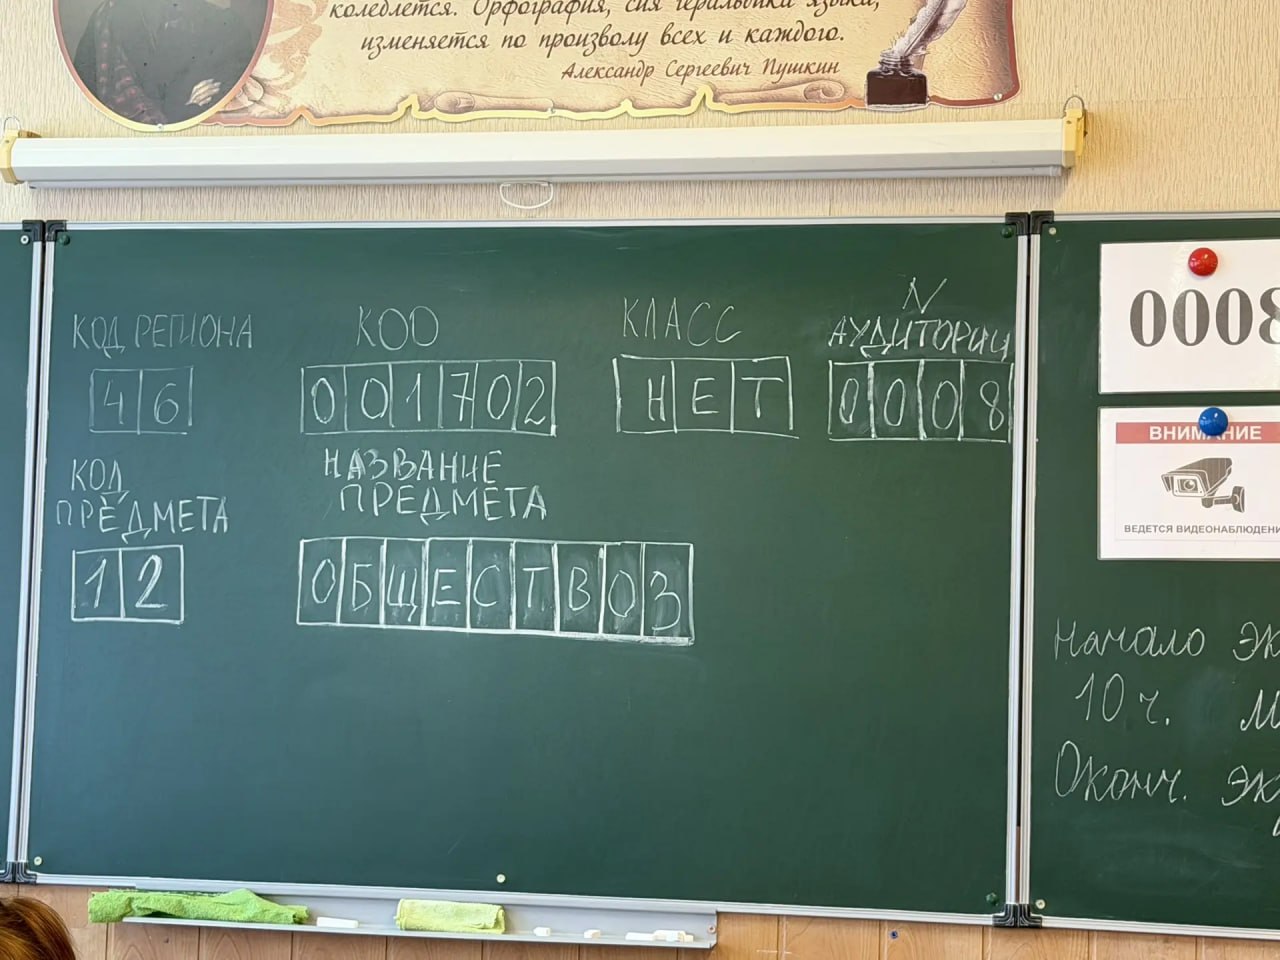 колеблется. Орфография, сия геральдика языка,
изменяется по произволу всех и каждого.
Александр Сергеевич Пушкин
КОД РЕГИОНА
КОО
КЛАСС
N
АУДИТОРИИ
46
001702
НЕТ
0008
КОД
ПРЕДМЕТА
НАЗВАНИЕ
ПРЕДМЕТА
12
ОБЩЕСТВОЗ
0008
ВНИМАНИЕ
ВЕДЕТСЯ ВИДЕОНАБЛЮДЕНИ
Начало эк
10 ч. м
Оконч. эк